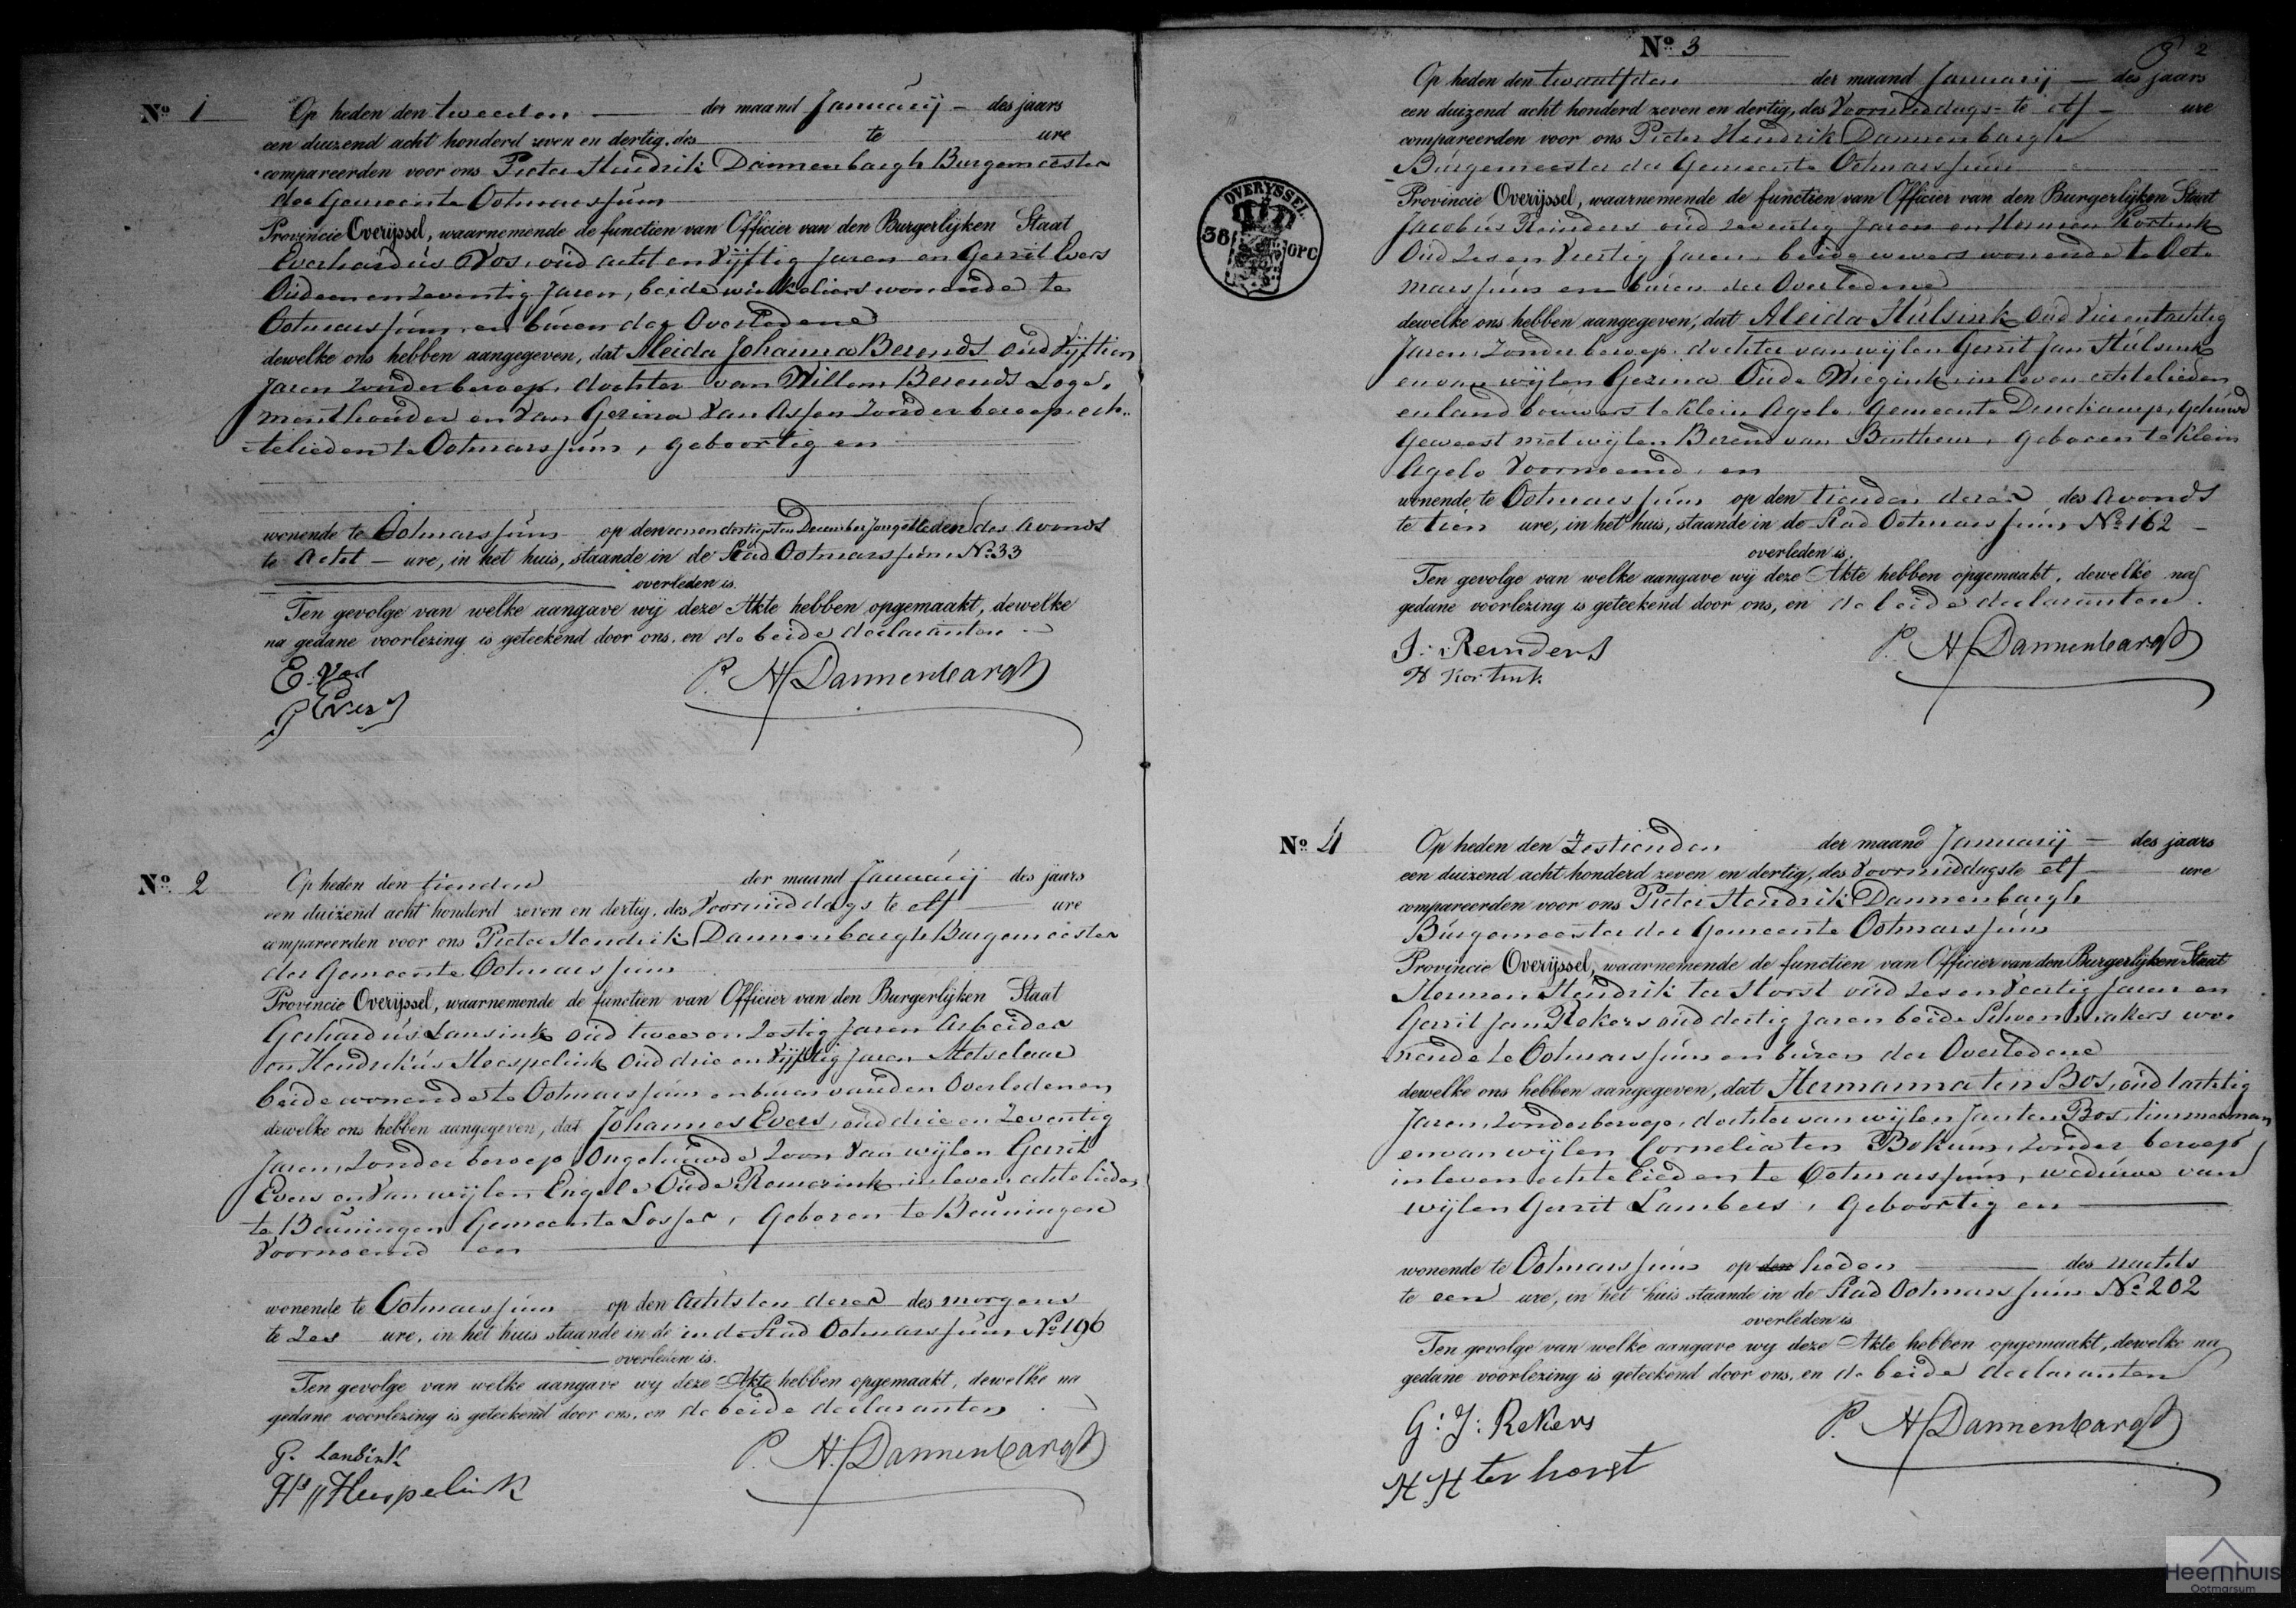 Nº 1
Op heden den tweeden der maand Januarij des jaars
een duizend acht honderd zeven en dertig, des te ure
compareerden voor ons Pieter Hendrik Dannenbargh Burgemeester
der Gemeente Ootmarssum
Provincie Overijssel, waarnemende de functien van Officier van den Burgerlijken Staat
Everhardus Vos, oud acht en Vijftig Jaren en Gerrit Evers
Oud een en Zeventig Jaren, beide winkeliers wonende te
Ootmarssum en buren der Overledene
dewelke ons hebben aangegeven, dat Aleida Johanna Berends oud Vijftien
Jaren zonder beroep, dochter van Willem Berends Loge„
menthouder en Van Gezina Van Assen Zonder beroep, ech„
telieden te Ootmarssum, geboortig en
wonende te Ootmarssum op den eenendertigsten December Jongstleden des Avonds
te Acht ure, in het huis, staande in de Stad Ootmarssum Nº 33
overleden is.
Ten gevolge van welke aangave wij deze Akte hebben opgemaakt, dewelke
na gedane voorlezing is geteekend door ons, en de beide declaranten
E. Vos
G Evers
P. H. Dannenbargh
Nº 2
Op heden den tienden der maand Januarij des jaars
een duizend acht honderd zeven en dertig, des Voormiddags te elf ure
compareerden voor ons Pieter Hendrik Dannenbargh Burgemeester
der Gemeente Ootmarssum
Provincie Overijssel, waarnemende de functien van Officier van den Burgerlijken Staat
Gerhardus Lansink oud twee en Zestig Jaren Arbeider
en Hendrikus Heespelink Oud drie en Vijftig Jaren Metselaar
beide wonende te Ootmarssum en buren van den Overledenen
dewelke ons hebben aangegeven, dat Johannes Evers, oud drie en Zeventig
Jaren, Zonder beroep Ongehuwde Zoon Van wijlen Gerrit
Evers en Van wijlen Engele Oude Remerink in leven echtelieden
te Beuningen Gemeente Losser, Geboren te Beuningen
Voornoemd en
wonende te Ootmarssum op den Achtsten dezer des morgens
te Zes ure, in het huis staande in de in de Stad Ootmarssum Nº 196
overleden is.
Ten gevolge van welke aangave wy deze Akte hebben opgemaakt, dewelke na
gedane voorlezing is geteekend door ons, en de beide declaranten
G. Lansink
Hs Heespelink
P. H. Dannenbargh
Nº 3
2
Op heden den twaalfden der maand Januarij des jaars
een duizend acht honderd zeven en dertig, des Voormiddags te elf ure
compareerden voor ons Pieter Hendrik Dannenbargh
Burgemeester der Gemeente Ootmarssum
Provincie Overijssel, waarnemende de functien van Officier van den Burgerlijken Staat
Jacobus Reinders oud zeventig Jaren en Hermen Kortink
Oud Zes en Veertig Jaren beide wevers wonende te Oot„
marssum en buren der Overledene
dewelke ons hebben aangegeven, dat Aleida Hulsink Oud Vier en tachtig
Jaren, Zonder beroep, dochter van wijlen Gerrit Jan Hulsink
en van wijlen Gezina Oude Wiegink in leven echtelieden
en landbouwers te Klein Agelo, Gemeente Denekamp, Gehuwd
Geweest met wijlen Berend van Bentheim, geboren te Klein
Agelo Voornoemd, en
wonende te Ootmarssum op den tienden dezer des Avonds
te tien ure, in het huis, staande in de Stad Ootmarssum Nº 162
overleden is.
Ten gevolge van welke aangave wij deze Akte hebben opgemaakt, dewelke na
gedane voorlezing is geteekend door ons, en de beide declaranten.
J: Reinders
H Kortink
P. H. Dannenbargh
OVERYSSEL
36
OPC
Nº 4
Op heden den Zestienden der maand Januarij des jaars
een duizend acht honderd zeven en dertig, des Voormiddags te elf ure
compareerden voor ons Pieter Hendrik Dannenbargh
Burgemeester der Gemeente Ootmarssum
Provincie Overijssel, waarnemende de functien van Officier van den Burgerlijken Staat
Hermen Hendrik ter Horst oud Zes en Veertig Jaren en
Gerrit Jan Rekers oud dertig Jaren beide Schoenmakers wo„
nende te Ootmarssum en buren der Overledene
dewelke ons hebben aangegeven, dat Hermanna ten Bos, oud tachtig
Jaren, Zonder beroep, dochter van wijlen Jan ten Bos, timmerman
en van wijlen Cornelia ten Bokum, Zonder beroep
in leven echtelieden te Ootmarssum, weduwe van
wijlen Gerrit Lambers, Geboortig en
wonende te Ootmarssum op den heden des nachts
te een ure, in het huis staande in de Stad Ootmarssum Nº 202
overleden is
Ten gevolge van welke aangave wy deze Akte hebben opgemaakt, dewelke na
gedane voorlezing is geteekend door ons, en de beide declaranten
G: J: Rekers
H H ter horst
P. H. Dannenbargh
Heemhuis
Ootmarsum